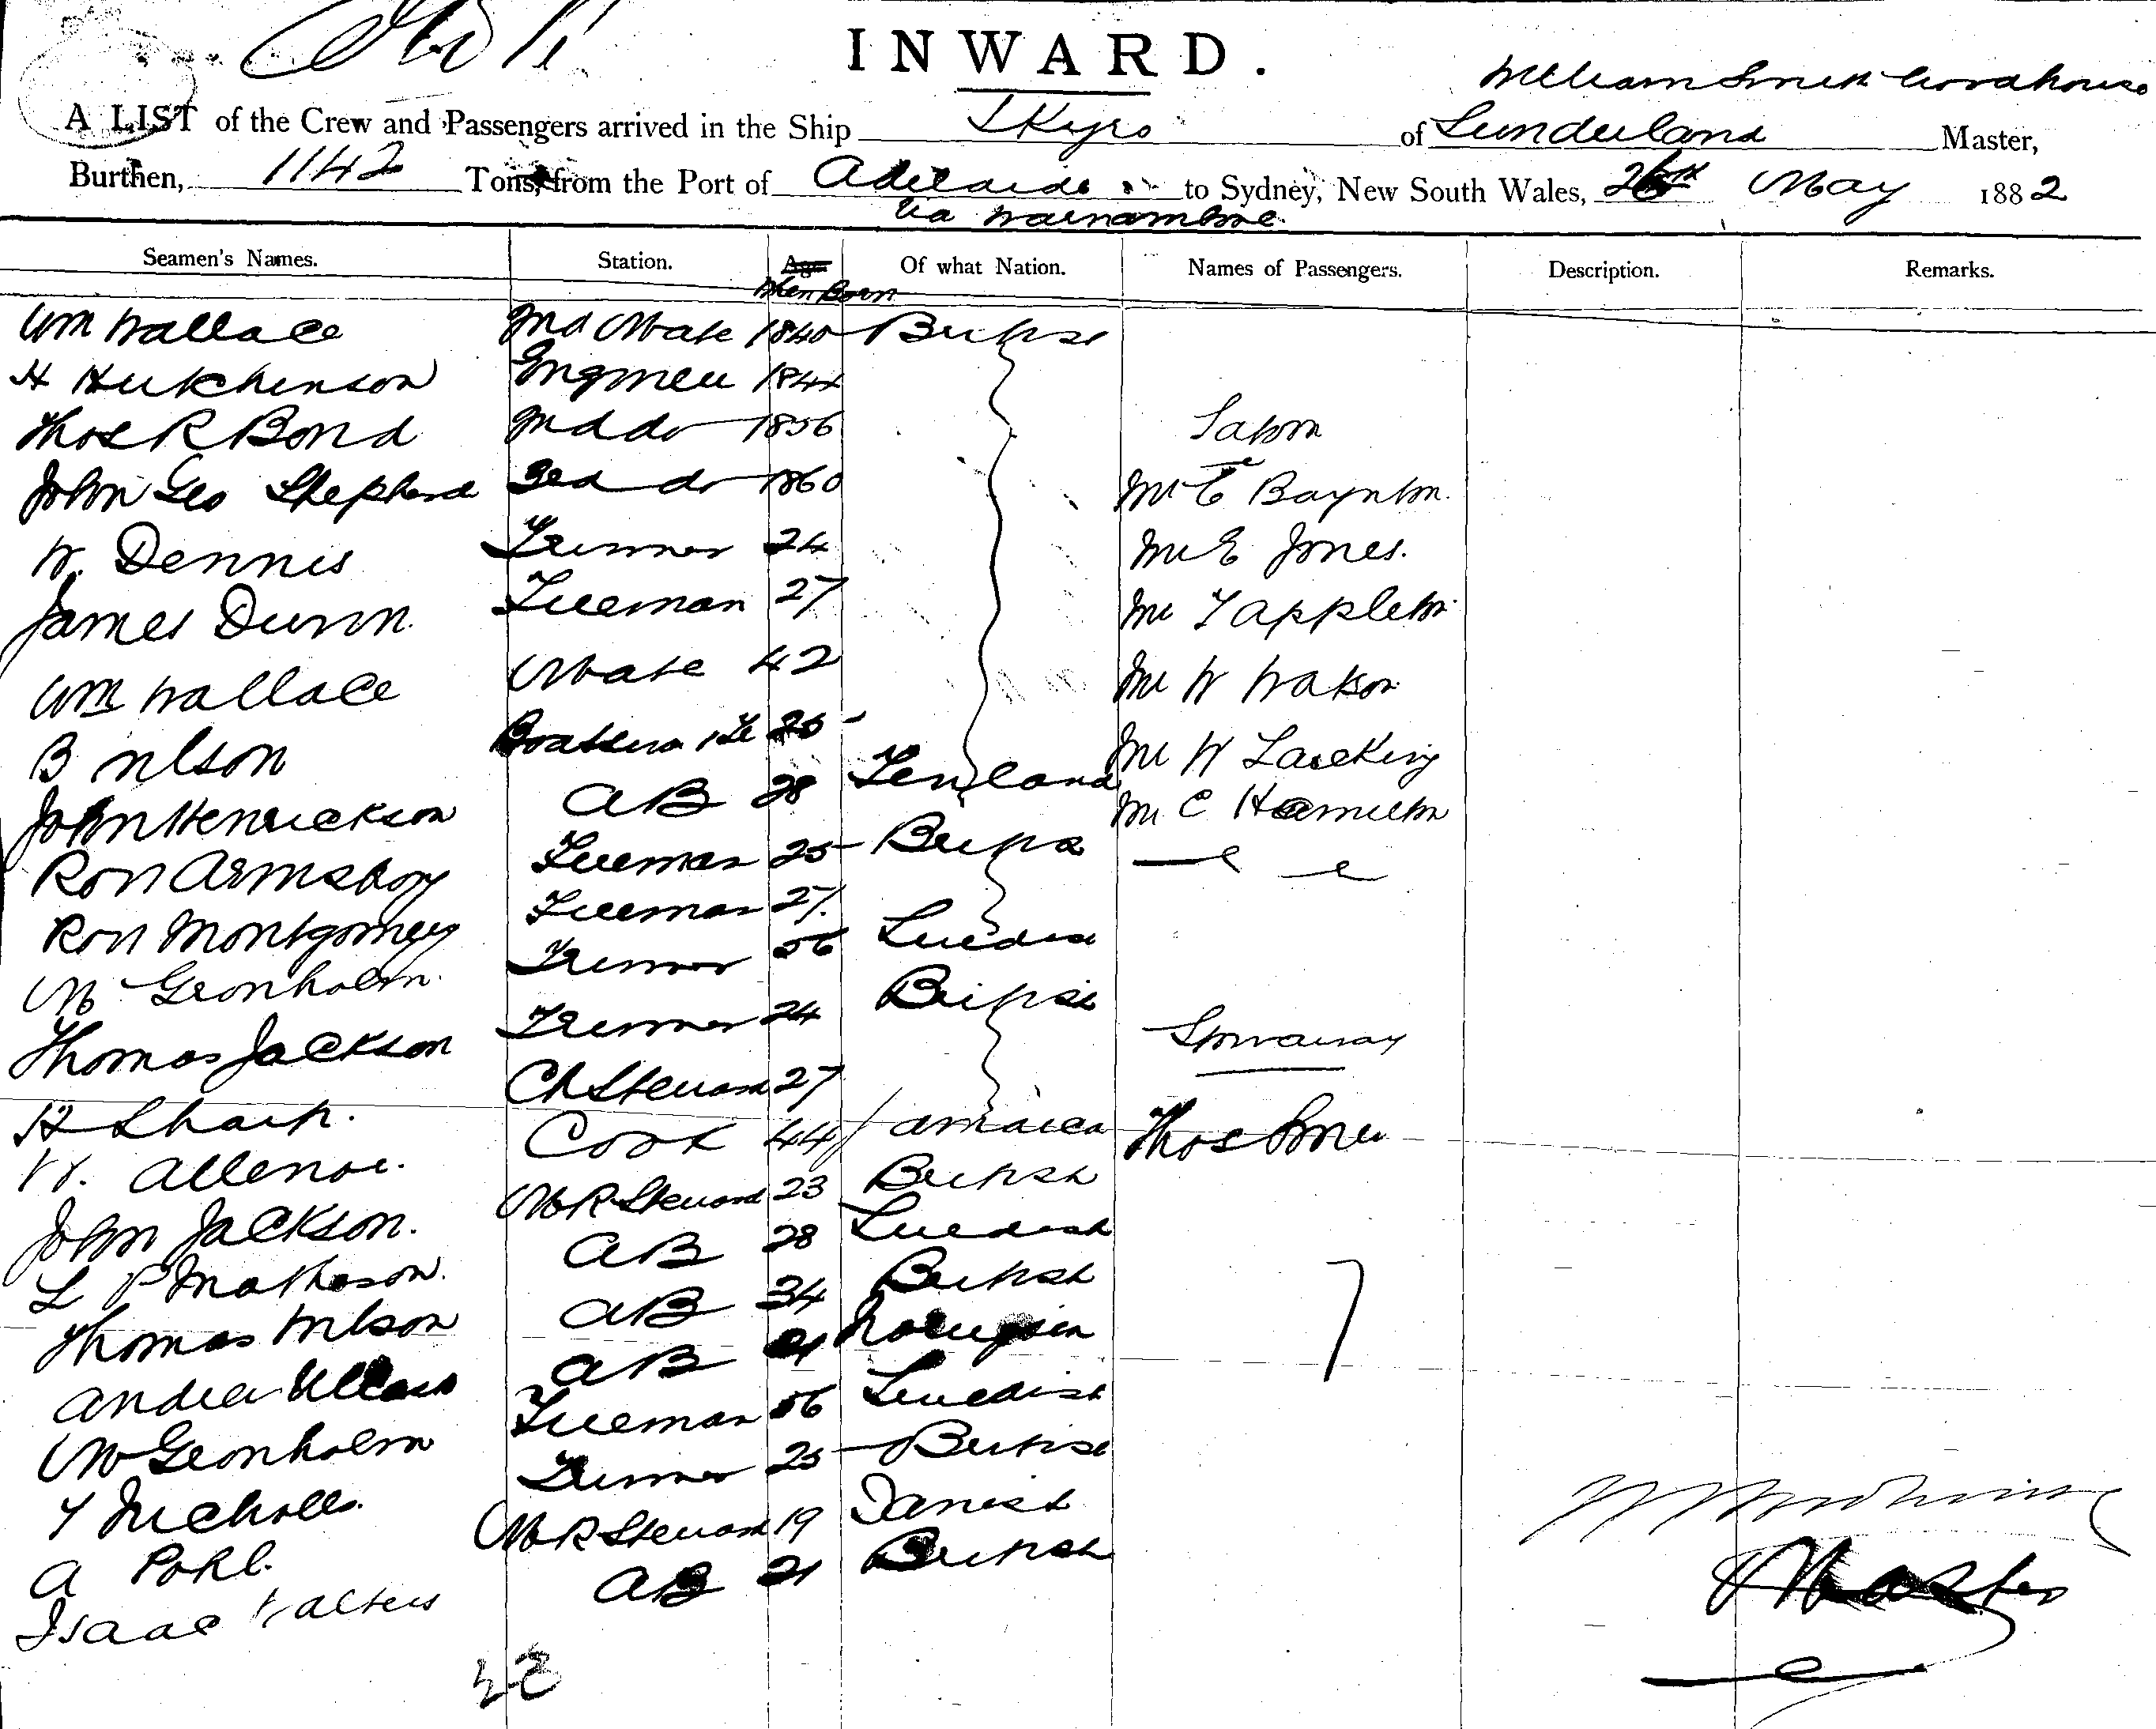 INWARD.
William Smith
A LIST of the Crew and Passengers arrived in the Ship Skyro of Sunderland Master,
Burthen, 1142 Tons, from the Port of Adelaide to Sydney, New South Wales, 26th May 1882
Via Warnambool
Seamen's Names. Station. Age Of what Nation. Names of Passengers. Description. Remarks.
When Born
Wm Wallace 2nd Mate 1840 British
H Hutchinson Engineer 1844
Thos R Bond 2nd do 1856 Saloon
John Geo Shepherd 3rd do 1860 Mr E Baynton.
W. Dennis Trimmer 24 Mr E Jones.
James Dunn. Fireman 27 Mr T Appleton
Wm Wallace Mate 42 Mr W Watson
B Nilson Boatswn 25 Mr W Larcking
John Henrickson AB 28 Finland Mr C Hamilton
Ron Armsbory Fireman 25 British
Ron Montgomery Fireman 27
M Gronholm. Trimmer 56 Swedish
Thomas Jackson Trimmer 24 British Steerage
H Sharp. Ch Steward 27
W. Cook 44 Jamaica Thos Jones
John Jackson. MR Steward 23 British
L P Matheson. AB 28 Swedish
Thomas Wilson AB 34 British
Andrea AB 21 Norwegian
M Gronholm Fireman 56 Swedish 7
T Nicholls. Trimmer 25 British
A Pohl. MR Steward 19 Danish
Isaac Walters AB 21 British
Master
22